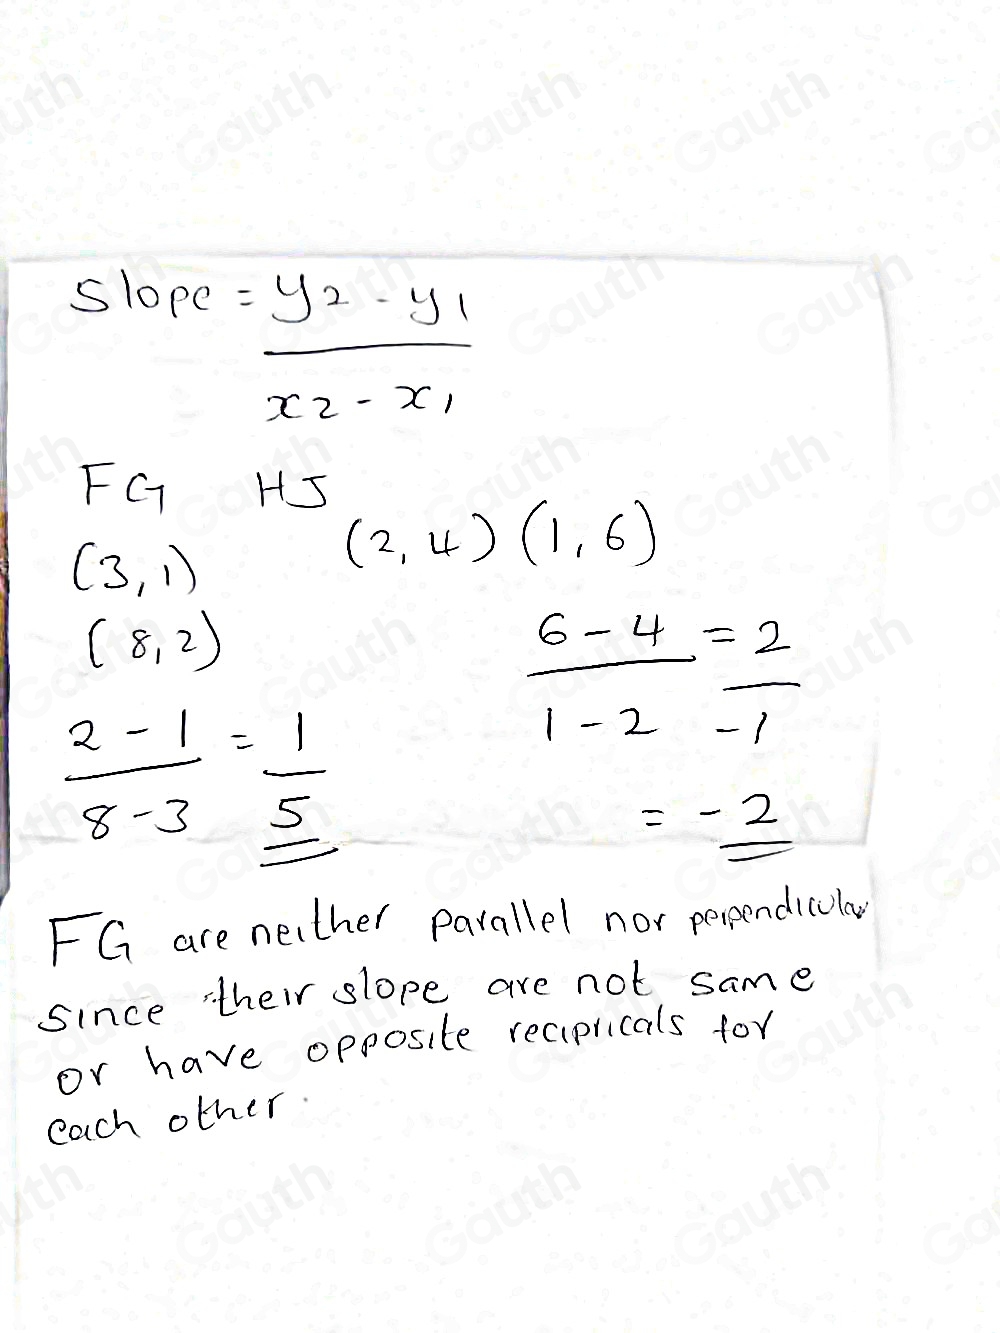 Slope = y2 - y1
x2 - x1
FG HJ
(3,1) (2,4) (1,6)
(8,2)
6 - 4 = 2
1 - 2 -1
2 - 1 = 1
8 - 3 5
= -2
FG are neither parallel nor perpendicular
since their slope are not same
or have opposite recipricals for
each other.
Gauth